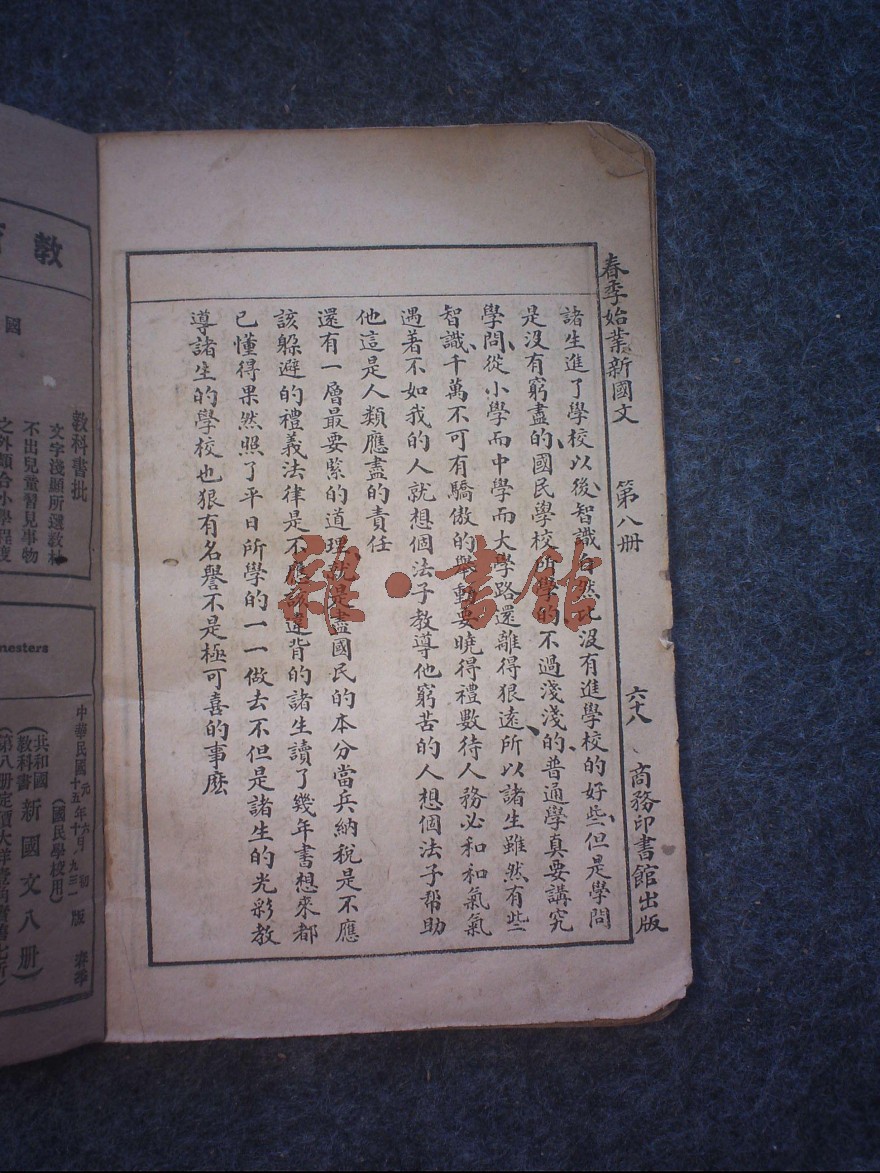 春季始業新國文 第八冊 六十八 商務印書館出版
諸生進了學校以後智識自然比沒有進學校的好些但是學問
是沒有窮盡的國民學校所學的不過淺淺的普通學真要講究
學問從小學而中學而大學路還離得狠遠所以諸生雖然有些
智識千萬不可有驕傲的舉動要曉得禮數待人務必和和氣氣
遇著不如我的人就想個法子教導他窮苦的人想個法子幫助
他這是人類應盡的責任
還有一層最要緊的道理就是盡國民的本分當兵納稅是不應
該躲避的禮義法律是不應該違背的諸生讀了幾年書想來都
已懂得果然照了平日所學的一一做去不但是諸生的光彩教
導諸生的學校也狠有名譽不是極可喜的事麽
雜·書館
教育
國
教科書批
文字淺顯所選教材
不出兒童習見事物
之外頗合小學程度
mesters
中華民國
元年六月初版
十五年十月九三一版
(國民學校用)
春季
共和國教科書
新國文八冊